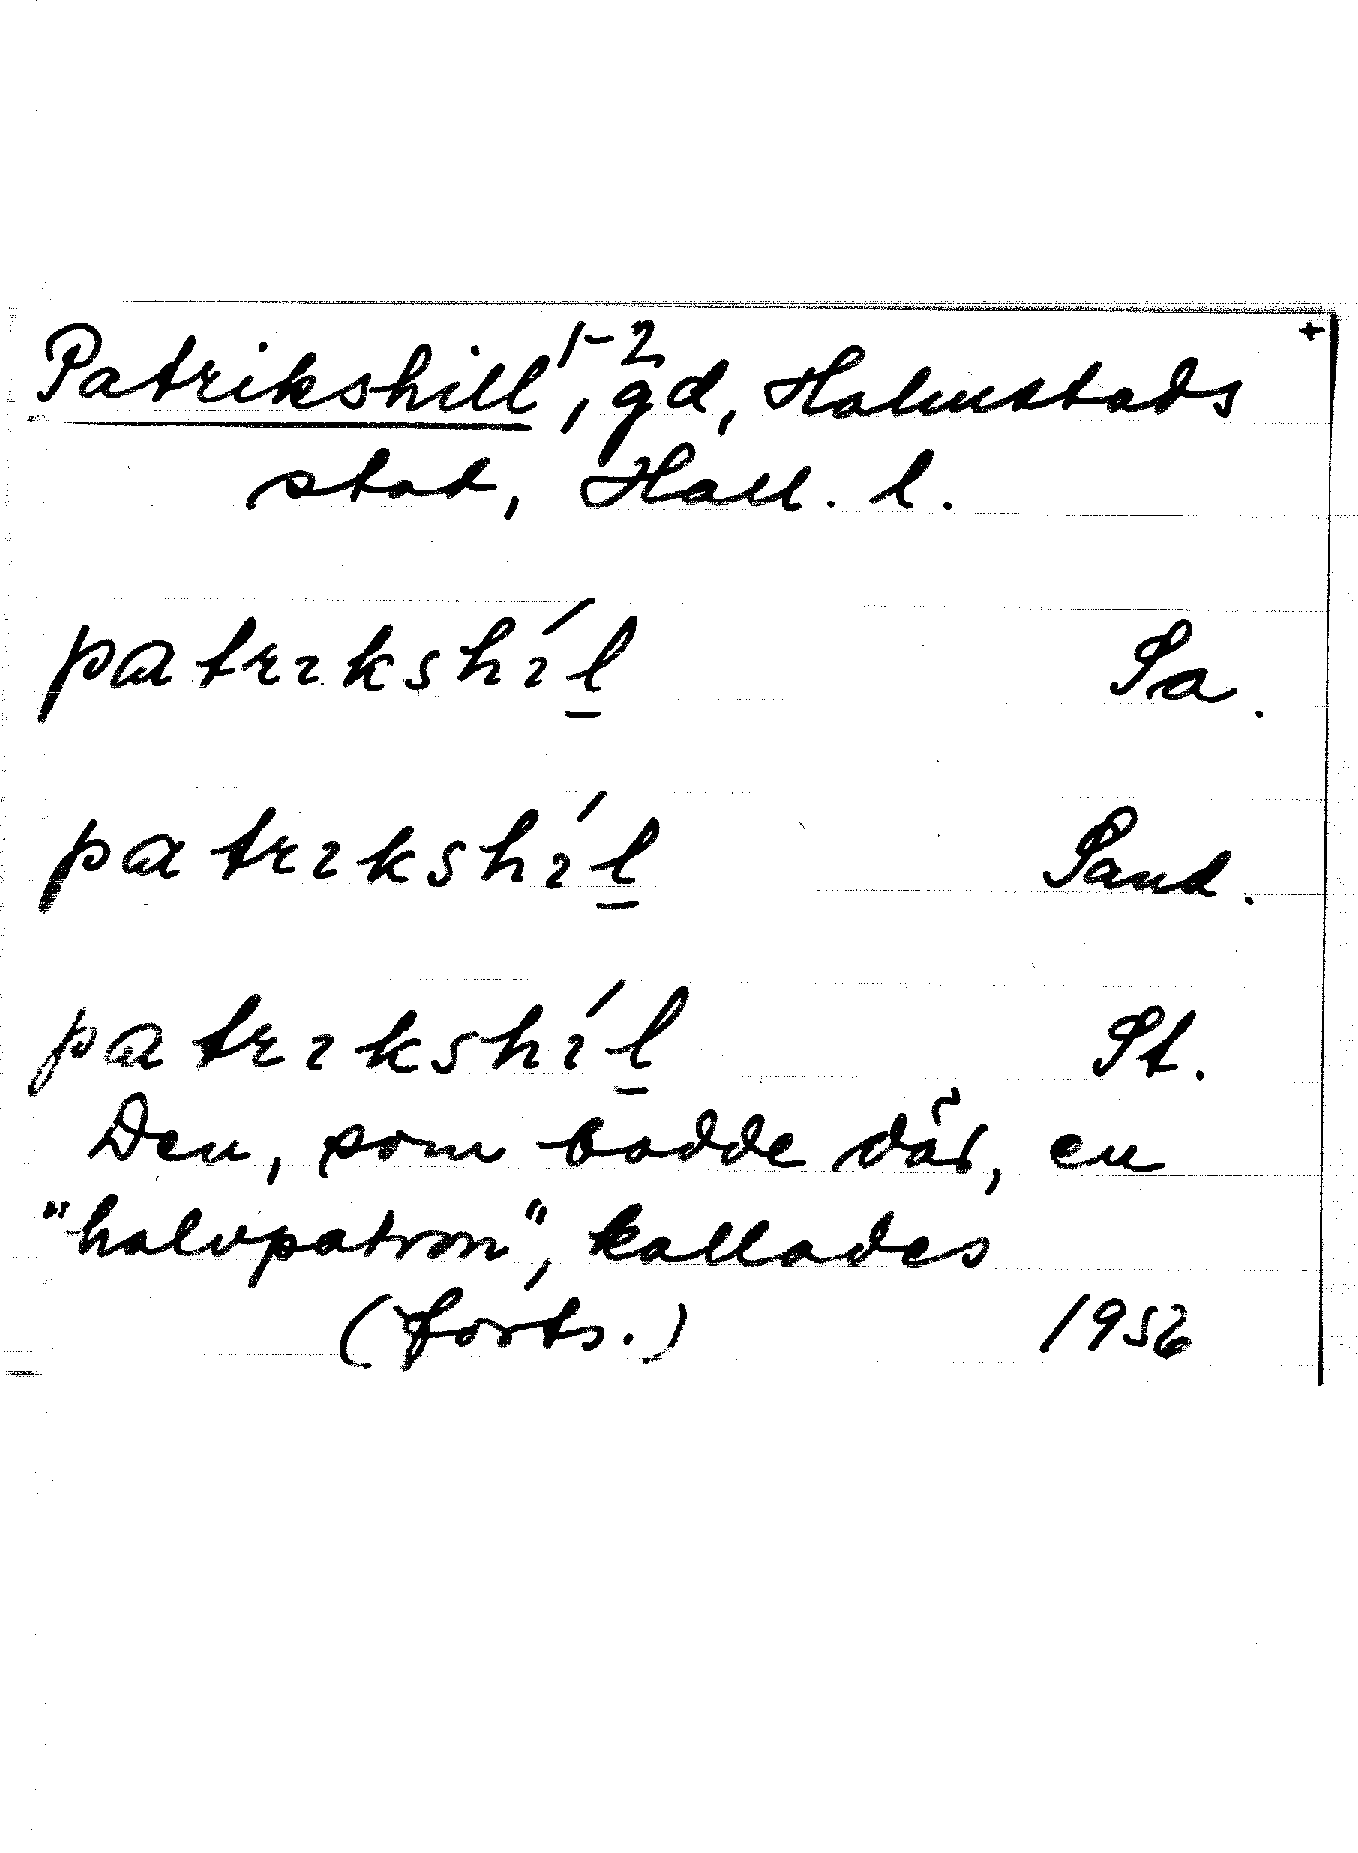 Patrikshill¹⁻², gd, Halmstads +
stad, Hall. l.
patrıkshı́l̲ Sa.
patrıkshı́l̲ Sand.
patrıkshı́l̲ St.
Den, som bodde där, en
"halvpatron", kallades
(forts.) 1956